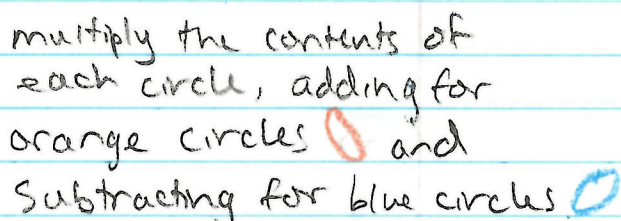 multiply the contents of
each circle, adding for
orange circles and
subtracting for blue circles